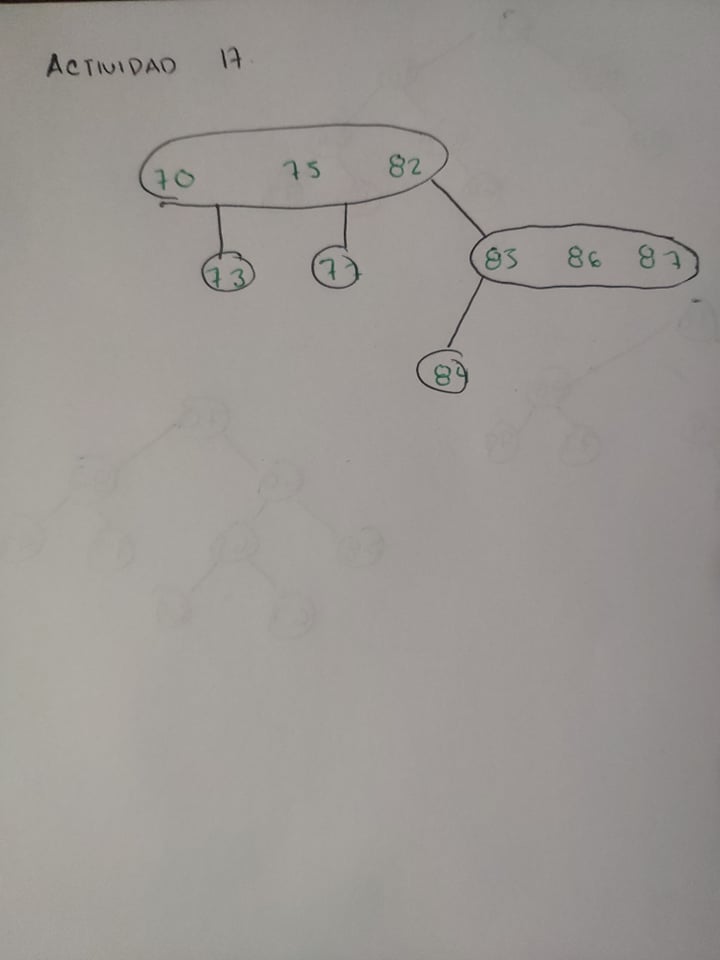 ACTIVIDAD 17
70 75 82
73 77 85 86 87
84